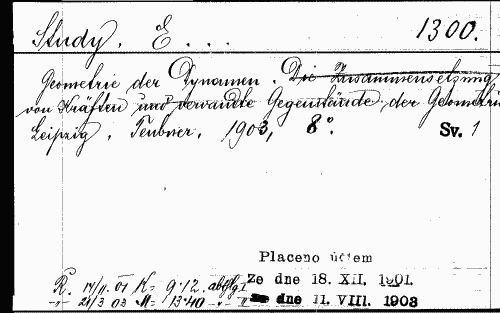 Study, E...
1300.
Geometrie der Dynamen. Die Zusammensetzung
von Kräften und verwandte Gegenstände der Geometrie
Leipzig, Teubner, 1903, 8°.
Sv. 1
Placeno účtem
R. 14/11. 01 K= 9·12. abglg I Ze dne 18. XII. 1901.
-"- 21/3 03 M= 13·40 -"- II ze dne 11. VIII. 1903